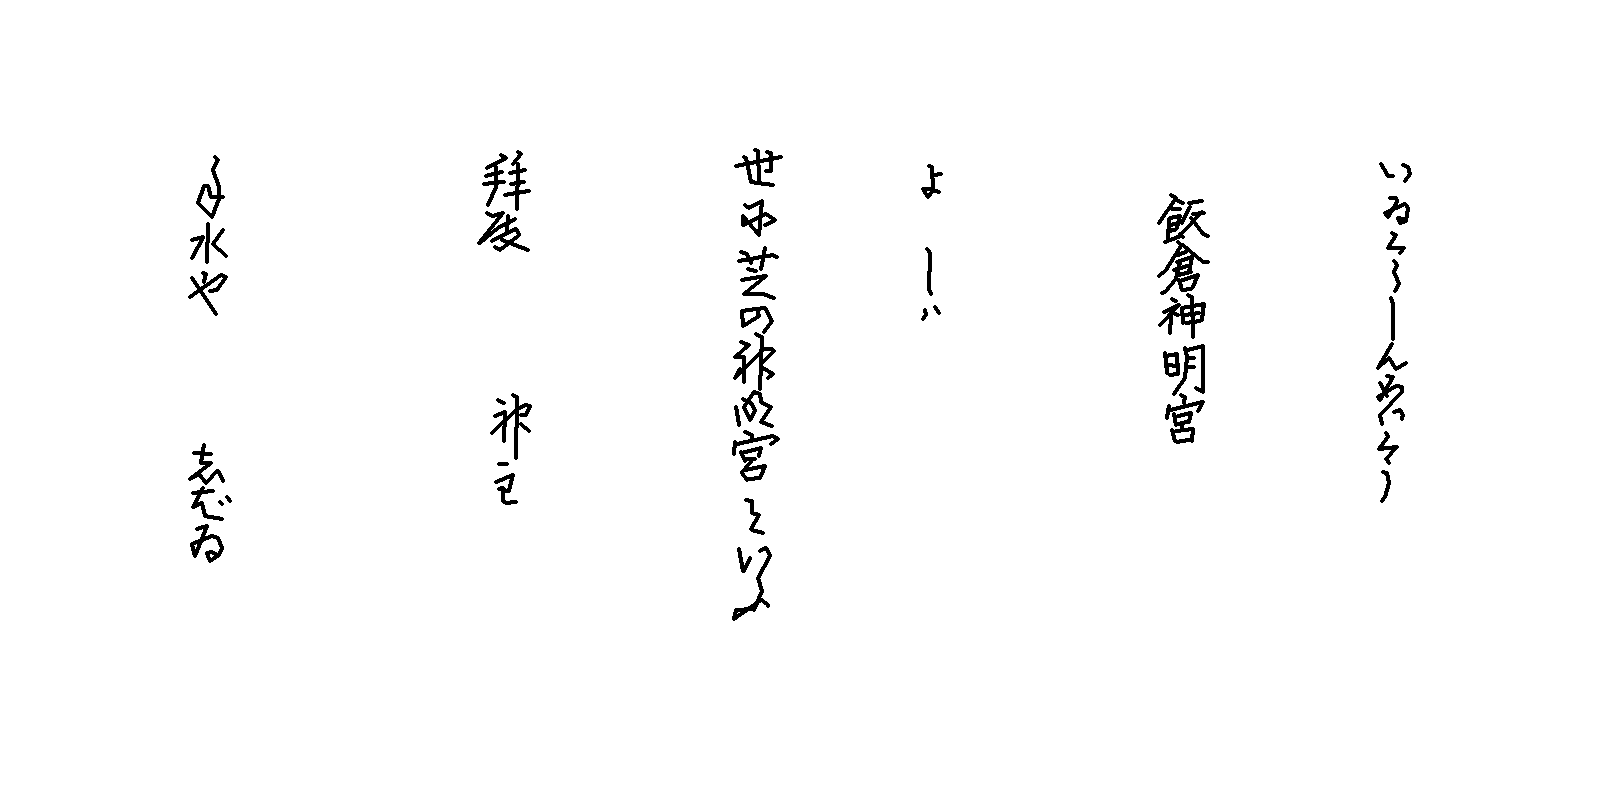 いゐくらしんめいくう
飯倉神明宮
よ しハ
世に芝の神明宮といふ
拝殿
神主
手水や
志ばゐ